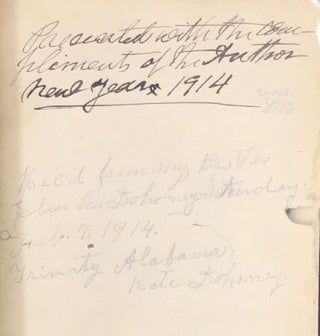 Presented with the com-
pliments of the Author
New Years 1914
Rec'd from my Brother
Eben L. Dohoney Saturday.
Feb. 7, 1914.
Trinity Alabama
Kate Dohoney